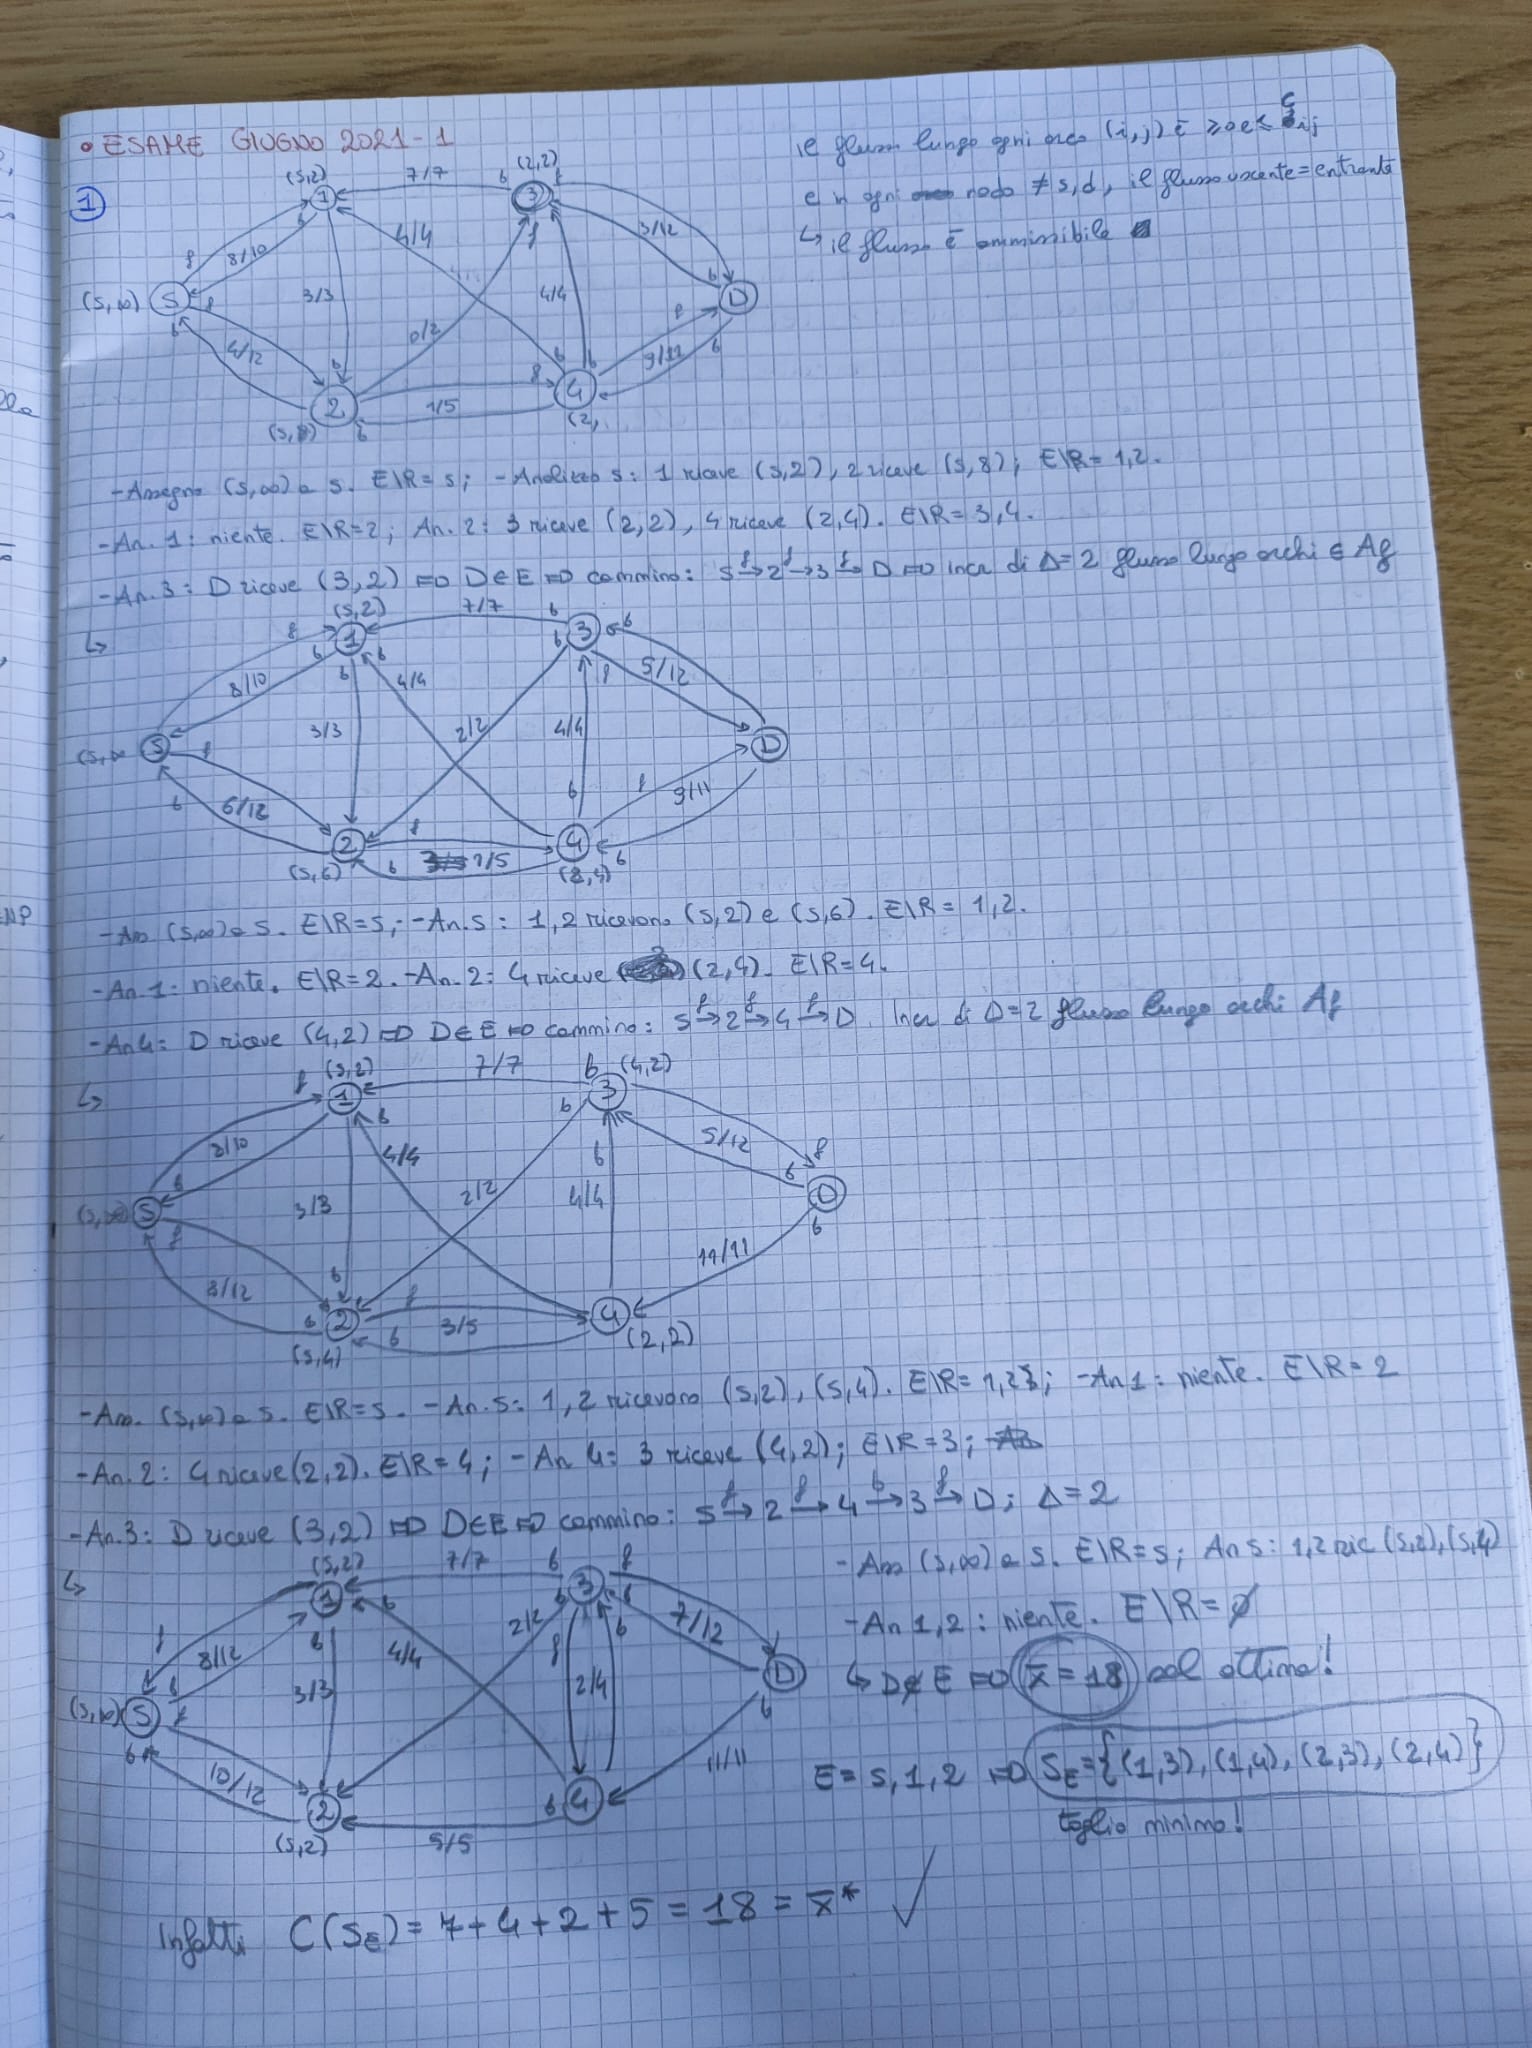 • ESAME GIUGNO 2021-1
1
il flusso lungo ogni arco (i,j) è ≥0 e ≤ Cij
e in ogni nodo ≠ s,d, il flusso uscente = entrante
↳ il flusso è ammissibile
(s,2) 7/7 b (2,2) f
1 3
f 8/10 b 4/4 f 3/12
(s,∞) S f 3/3 0/2 4/4 b D
b 4/12 b f b b f 9/11 b
2 1/5 4
(s,8) b (2,
-Assegno (s,∞) a s. E\R= s; -Analizzo s: 1 riceve (s,2), 2 riceve (s,8); E\R= 1,2.
-An. 1: niente. E\R=2; An. 2: 3 riceve (2,2), 4 riceve (2,4). E\R=3,4.
-An. 3: D riceve (3,2) ⇒ D∈E ⇒ cammino: s f→ 2 f→ 3 f→ D ⇒ incr di Δ=2 flusso lungo archi ∈ Af
↳ (s,2) 7/7 b
f 1 b 3 b
8/10 b b b 4/4 f 5/12
(s,∞ S f 3/3 2/2 4/4 D
b 6/12 f b f 9/11
2 b 1/5 4 b
(s,6) (2,4)
-Ass (s,∞) a s. E\R=s; -An. s: 1,2 ricevono (s,2) e (s,6). E\R= 1,2.
-An. 1: niente. E\R=2. -An. 2: 4 riceve (2,4). E\R=4.
-An 4: D riceve (4,2) ⇒ D∈E ⇒ cammino: s f→ 2 f→ 4 f→ D. Incr di Δ=2 flusso lungo archi Af
↳ f (s,2) 7/7 b (4,2)
1 b b 3
8/10 4/4 b 5/12 f
b 3/3 2/2 4/4 b D
S b
8/12 b f 11/11
b 2 b 3/5 4
(s,4) (2,2)
-Ass. (s,∞) a s. E\R=s. -An. s: 1,2 ricevono (s,2), (s,4). E\R= 1,2; -An 1: niente. E\R=2
-An. 2: 4 riceve (2,2). E\R=4; -An 4: 3 riceve (4,2); E\R=3;
-An. 3: D riceve (3,2) ⇒ D∈E ⇒ cammino: s f→ 2 f→ 4 b→ 3 f→ D; Δ=2
-Ass (s,∞) a s. E\R=s; An s: 1,2 ric (s,2), (s,4)
↳ (s,2) 7/7 b f
1 b b 3 b
f 8/12 b 4/4 2/2 f b 7/12
(s,∞) S f 3/3 2/4 D
b 10/12 11/11 b
2 5/5 b 4
(s,2)
-An 1,2: niente. E\R=∅
↳ D∉E ⇒ x̄=18 sol ottima!
E= s,1,2 ⇒ SE={(1,3), (1,4), (2,3), (2,4)}
taglio minimo!
Infatti C(SE)= 7+4+2+5=18= x̄* ✓